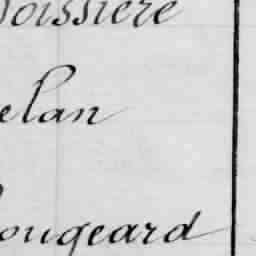 oissière
elan
ougeard